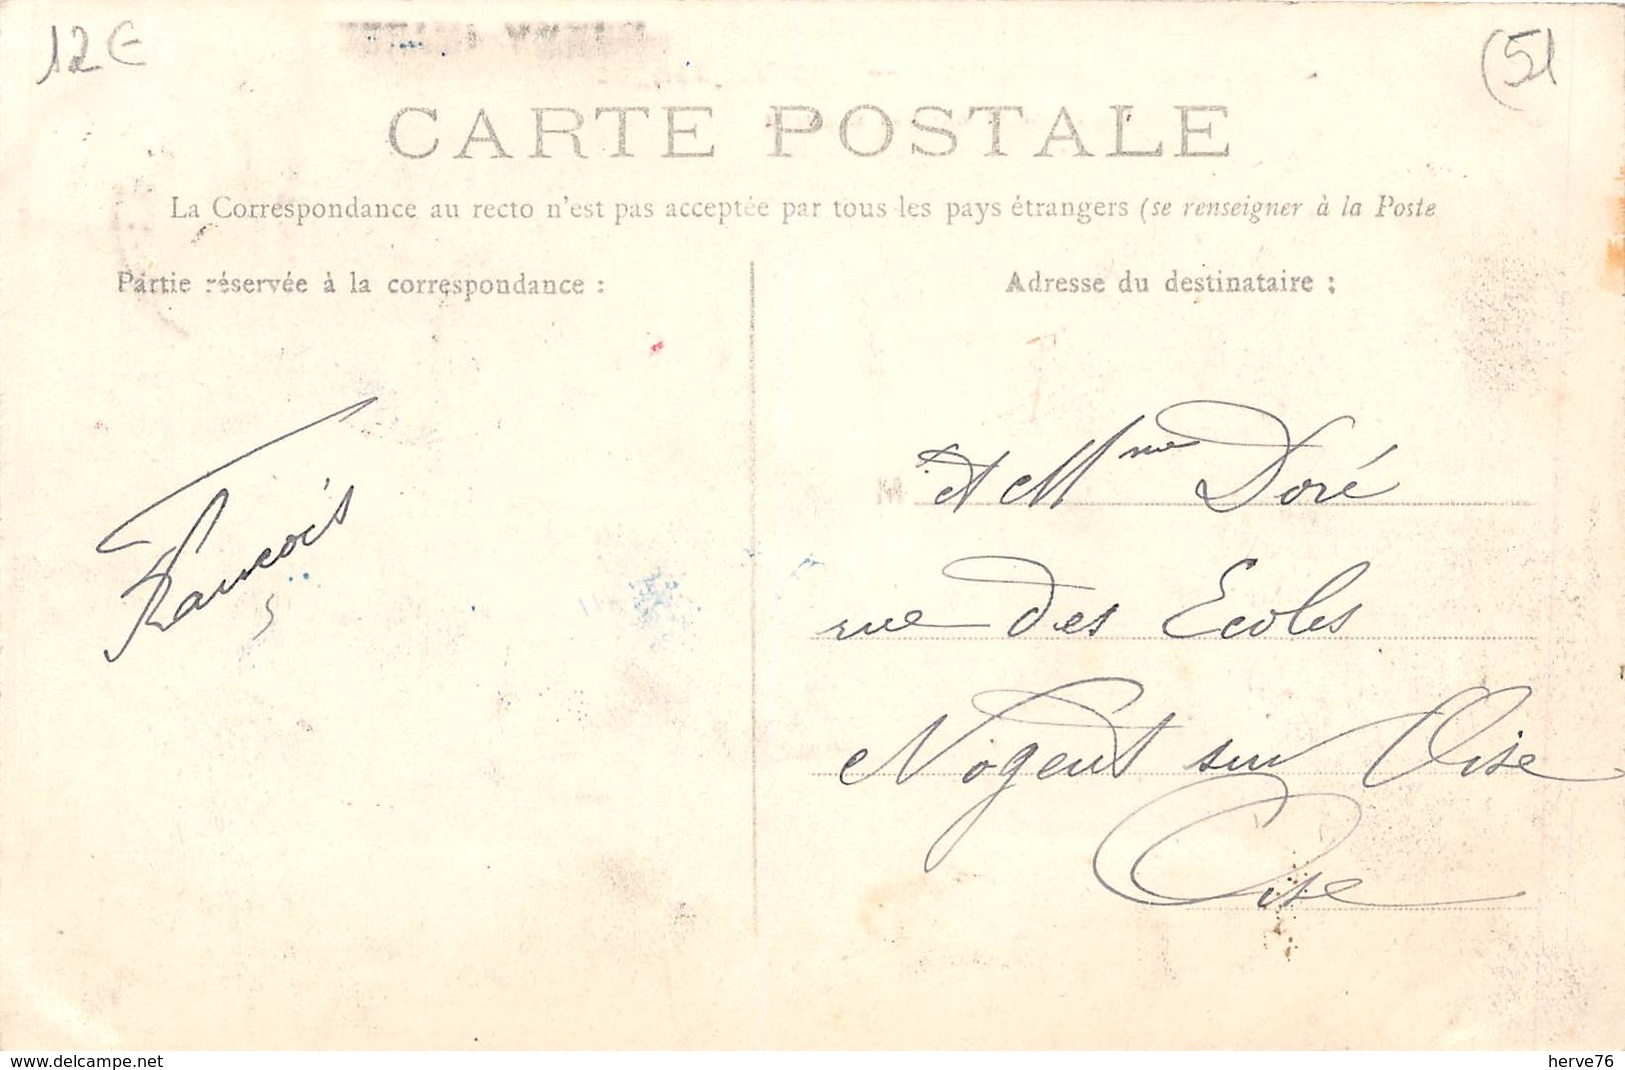 12€
(51
CARTE POSTALE
La Correspondance au recto n'est pas acceptée par tous les pays étrangers (se renseigner à la Poste
Partie réservée à la correspondance :
Adresse du destinataire :
François
M et Mme Doré
rue des Ecoles
Nogent sur Oise
Oise
www.delcampe.net
herve76